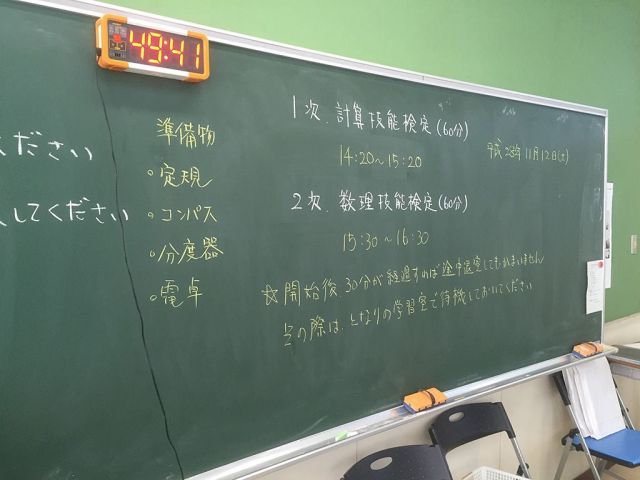 49:41
ください
してください
準備物
・定規
・コンパス
・分度器
・電卓
1次.計算技能検定(60分)
14:20~15:20
平成28年11月12日(土)
2次.数理技能検定(60分)
15:30~16:30
☆開始後、30分が経過すれば途中退室してもかまいません
その際は、となりの学習室で待機しておいてください